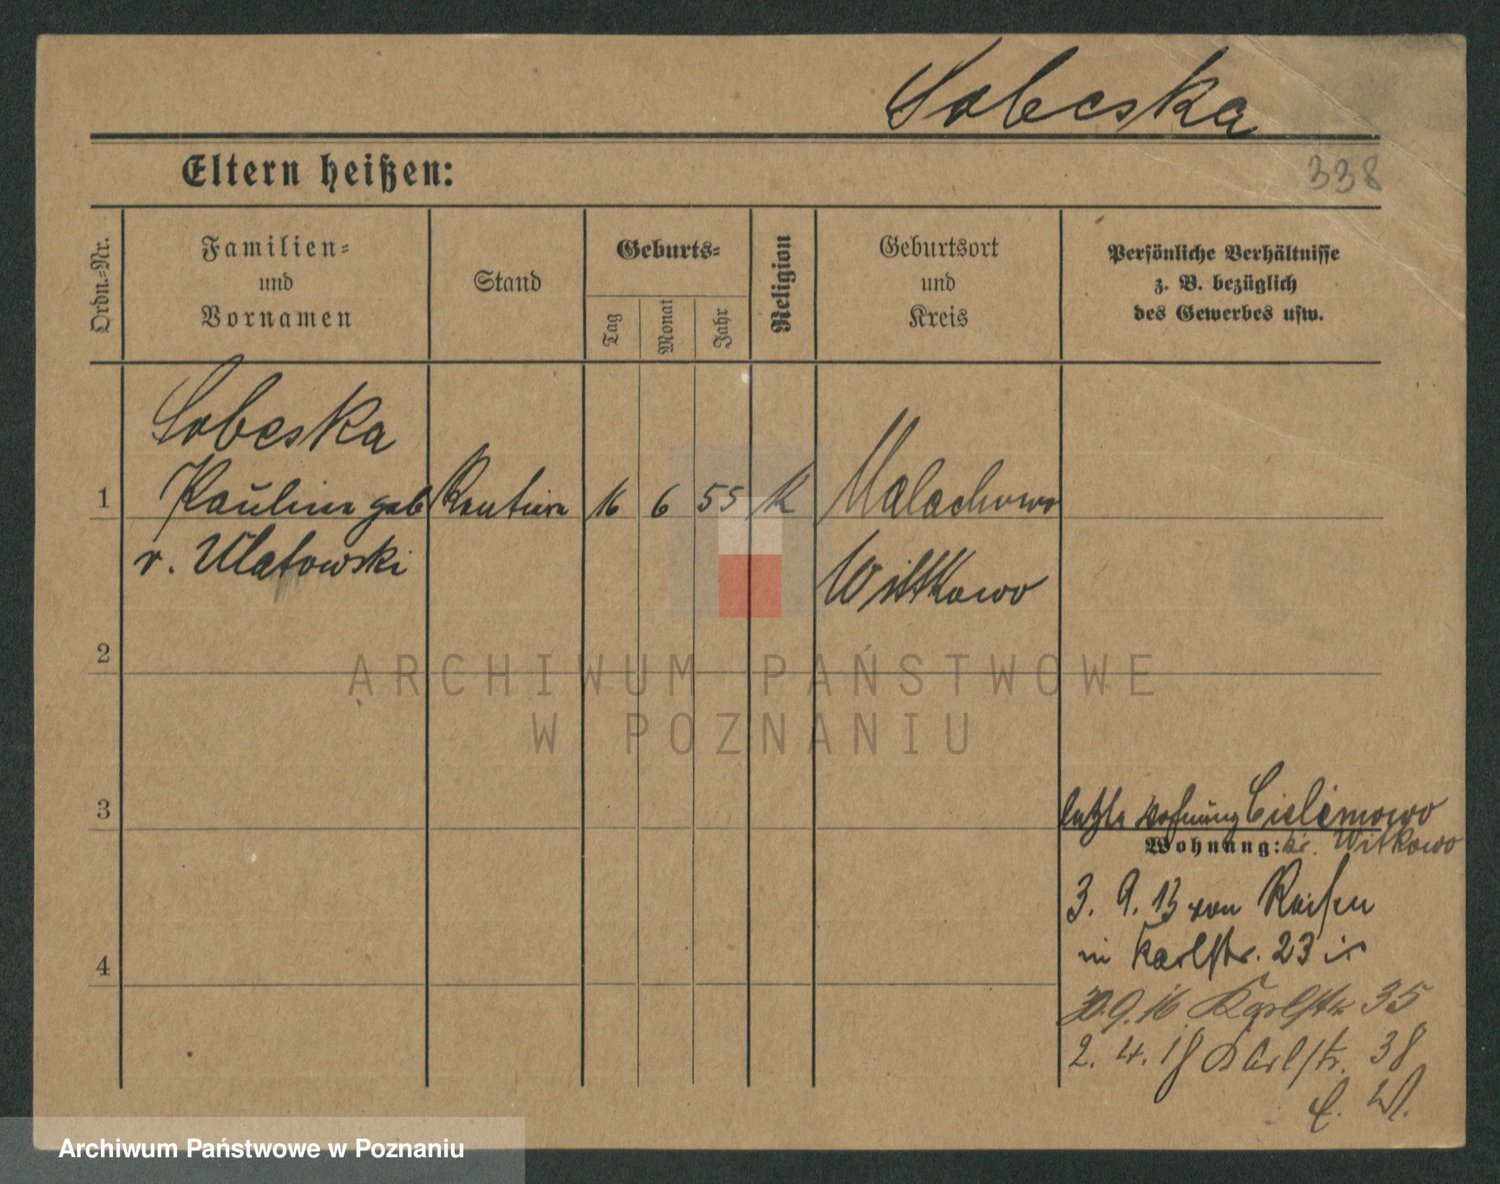 Sobeska
Eltern heißen:
338
Ordn.-Nr.
Familien-
und
Vornamen
Stand
Geburts-
Tag
Monat
Jahr
Religion
Geburtsort
und
Kreis
Persönliche Verhältnisse
z. B. bezüglich
des Gewerbes usw.
Sobeska
1 Pauline geb Rentiere 16 6 55 K Malachowo
v. Ulatowski
Wittkowo
2
ARCHIWUM PAŃSTWOWE
W POZNANIU
3
letzte Wohnung Cielimowo
Wohnung: Kr. Witkowo
3. 9. 13 von Reisen
in Karlstr. 23
4
30.9.16 Karlstr 35
2. 4. 18 Karlstr. 38
Archiwum Państwowe w Poznaniu